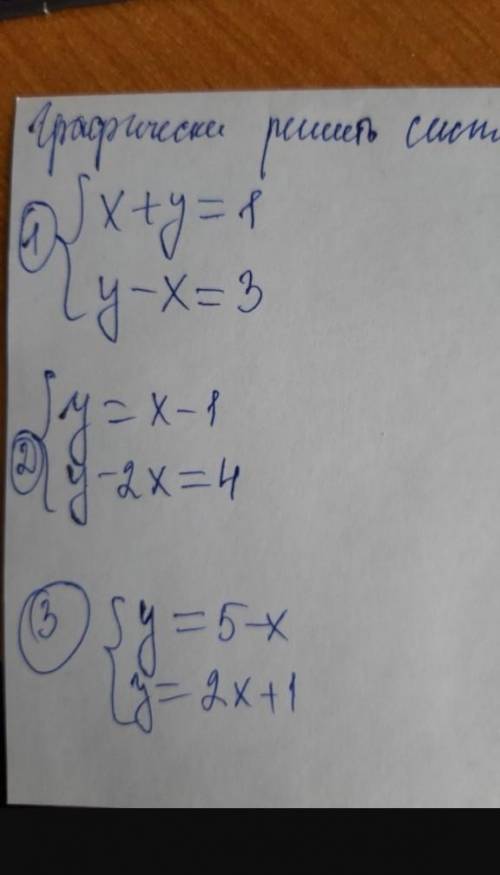 Графически решить сист
1 { x + y = 1
y - x = 3
2 { y = x - 1
y - 2x = 4
3 { y = 5 - x
y = 2x + 1